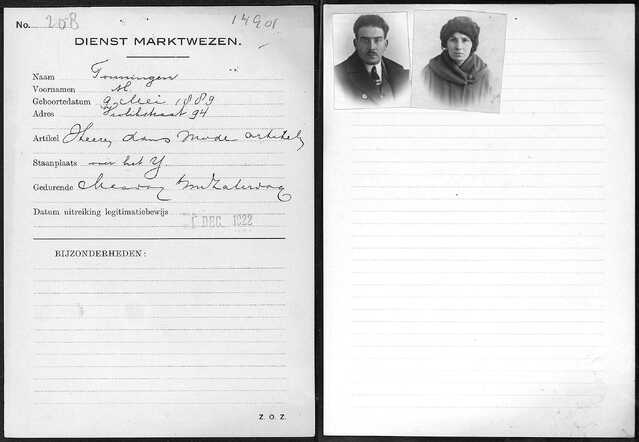 No. 20B 14901
DIENST MARKTWEZEN.
Naam Tonningen
Voornamen M
Geboortedatum 9 Mei 1889
Adres 94
Artikel Heeren dans Mode artikelen
Staanplaats over het Y
Gedurende Maandag t/m Zaterdag
Datum uitreiking legitimatiebewijs 1 DEC. 1922
BIJZONDERHEDEN:
Z. O. Z.